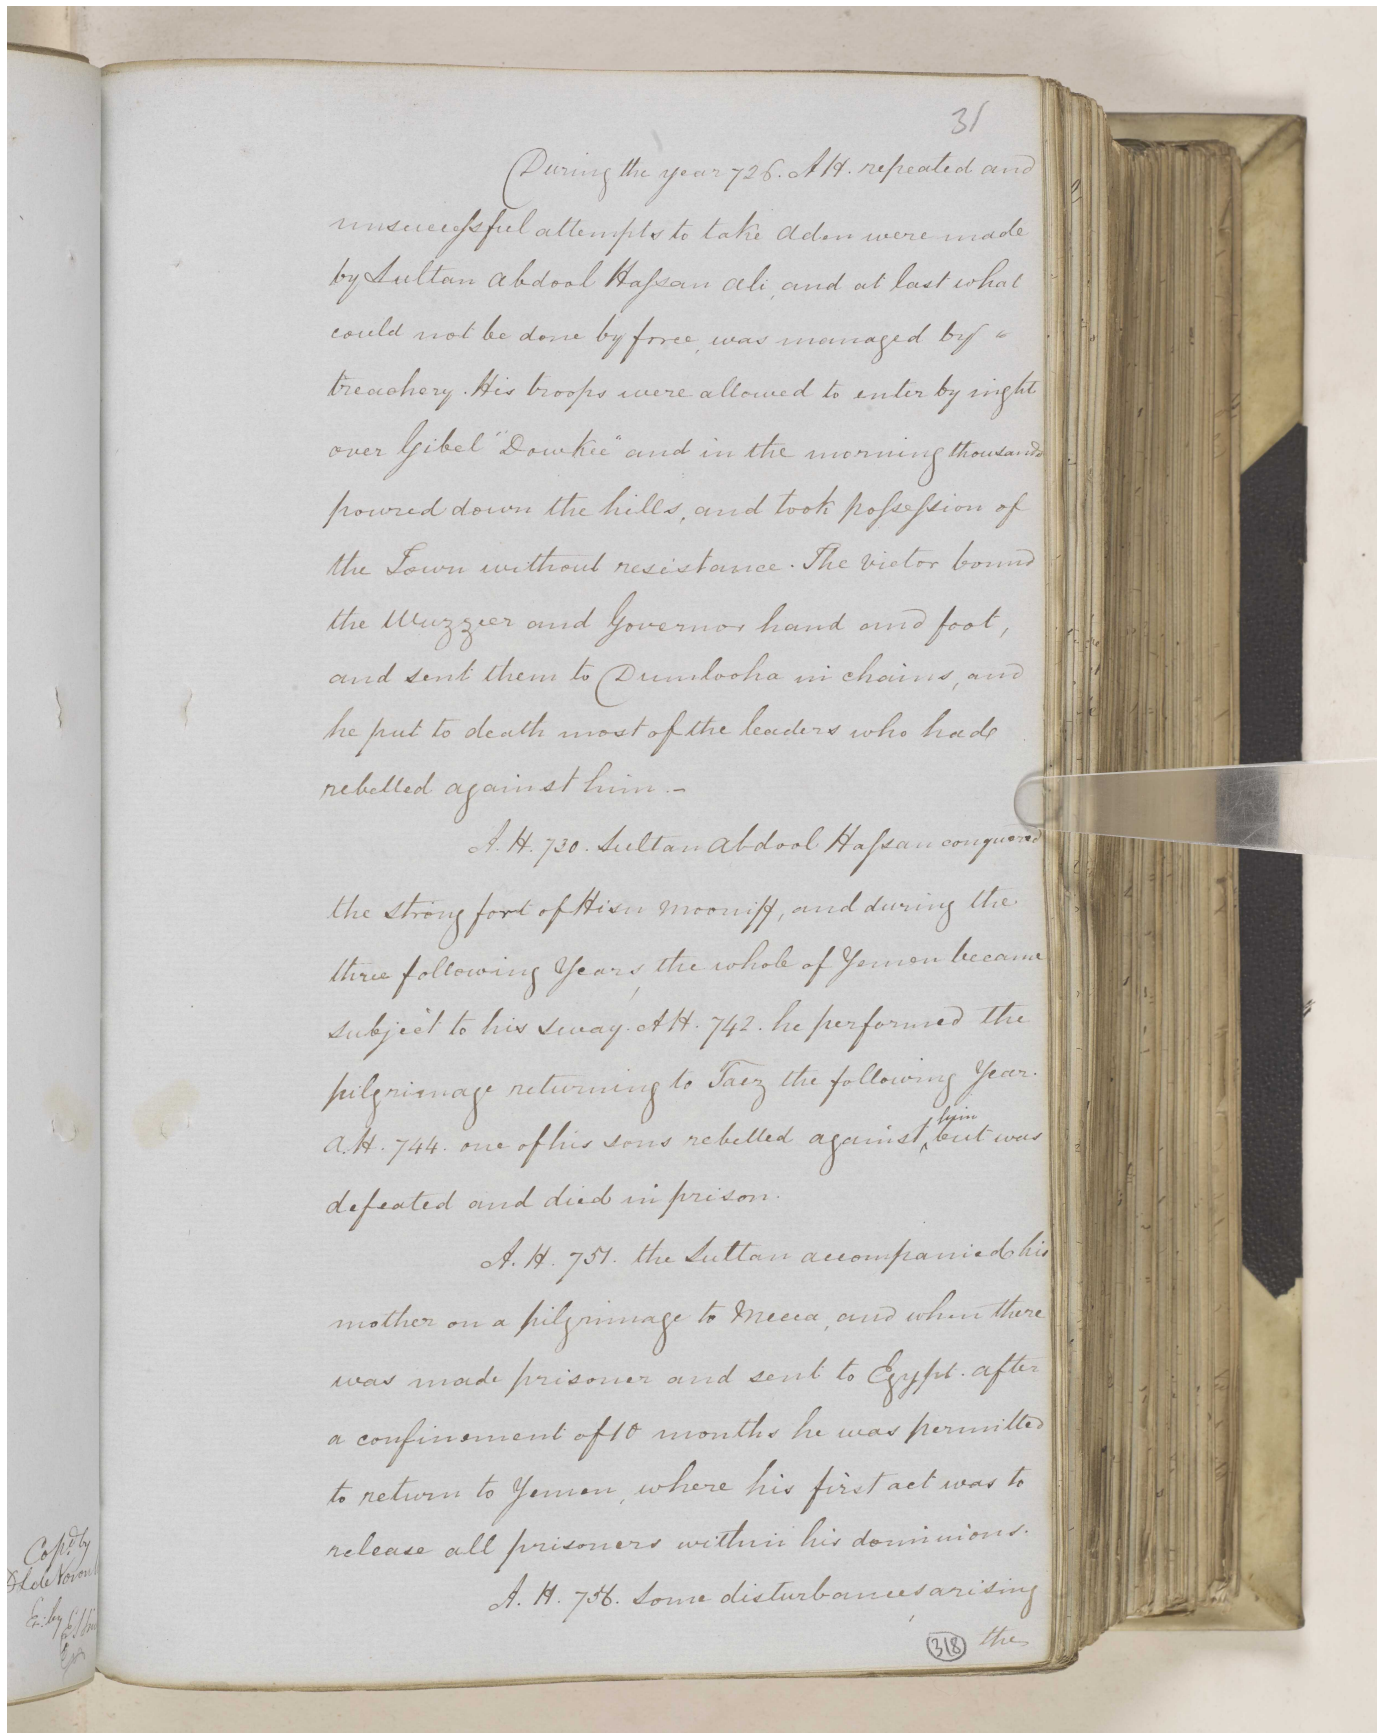 31
During the year 726. A H. repeated and
unsuccessful attempts to take Aden were made
by Sultan Abdool Hassan Ali, and at last what
could not be done by force, was managed by "
treachery. His troops were allowed to enter by night
over Gibel "Dowkie" and in the morning thousands
poured down the hills, and took possession of
the Town without resistance. The victor bound
the Wuzzeer and Governor hand and foot,
and sent them to Dumlooha in chains, and
he put to death most of the leaders who had
rebelled against him. -
A. H. 730. Sultan Abdool Hassan conquered
the strong fort of Hisn Mooniff, and during the
three following Years, the whole of Yemen became
subject to his sway. A H. 742. he performed the
pilgrimage returning to Taez the following Year.
A. H. 744. one of his sons rebelled against him but was
defeated and died in prison.
A. H. 751. the Sultan accompanied his
mother on a pilgrimage to Mecca, and when there
was made prisoner and sent to Egypt. after
a confinement of 10 months he was permitted
to return to Yemen, where his first act was to
release all prisoners within his dominions.
A. H. 756. Some disturbances, arising
the
318
Copd. by
Ex: by